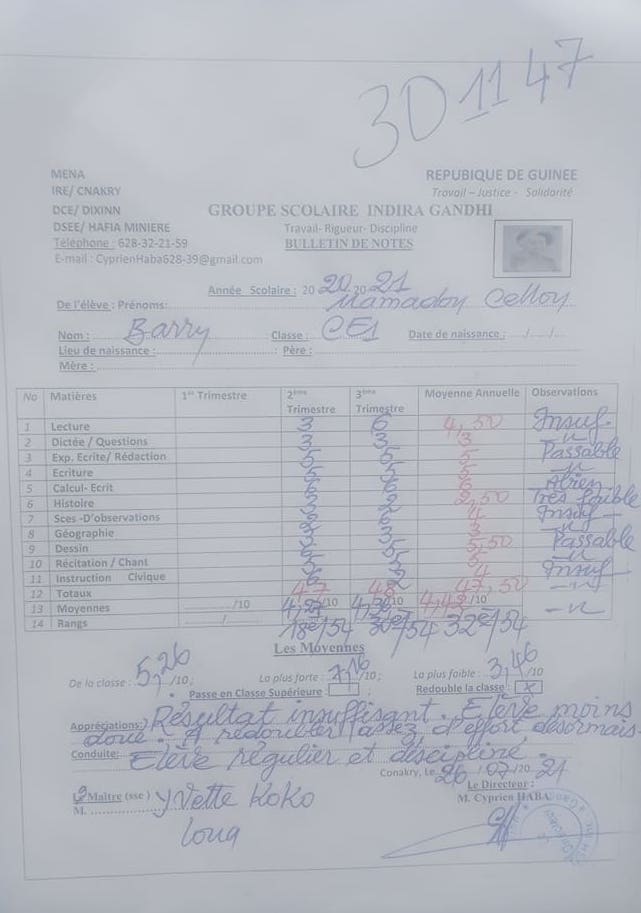 301147
MENA
REPUBLIQUE DE GUINEE
IRE/ CNAKRY
Travail – Justice - Solidarité
DCE/ DIXINN
GROUPE SCOLAIRE INDIRA GANDHI
DSEE/ HAFIA MINIERE
Travail- Rigueur- Discipline
Téléphone : 628-32-21-59
BULLETIN DE NOTES
E-mail : CyprienHaba628-39@gmail.com
Année Scolaire : 20 20 20 21
De l'élève : Prénoms: Mamadou Cellou
Nom : Barry Classe : CE1 Date de naissance : / /
Lieu de naissance : : Père :
Mère :
No Matières 1er Trimestre 2ème Trimestre 3ème Trimestre Moyenne Annuelle Observations
1 Lecture 3 6 4,50 Insuf.
2 Dictée / Questions 3 3 3 -"-
3 Exp. Ecrite/ Rédaction 5 5 5 Passable
4 Ecriture 5 5 5 -"-
5 Calcul- Ecrit 6 6 6 Abien
6 Histoire 2,50 Très faible
7 Sces -D'observations 4 Insuf -
8 Géographie 3 3 3 -"-
9 Dessin 5,50 Passable
10 Récitation / Chant 5 5 5 -"-
11 Instruction Civique 6 2 4 Insuf -
12 Totaux 47 48 47,50 -"-
13 Moyennes /10 /10 /10 /10 -"-
14 Rangs / 18e/54 30e/54 32e/54
Les Moyennes
De la classe : 5,26 /10 ; La plus forte : 7,16 /10 ; La plus faible : 3,46 /10
Passe en Classe Supérieure : ; Redouble la classe : x
Appréciations : Résultat insuffisant. Elève moins
doué. A redoubler assez d'effort désormais.
Conduite: Elève régulier et discipliné.
Conakry, Le 26 /07/20 21
Le Maître (sse) Yvette KOKO
Le Directeur :
M.
M. Cyprien HABA
Loua